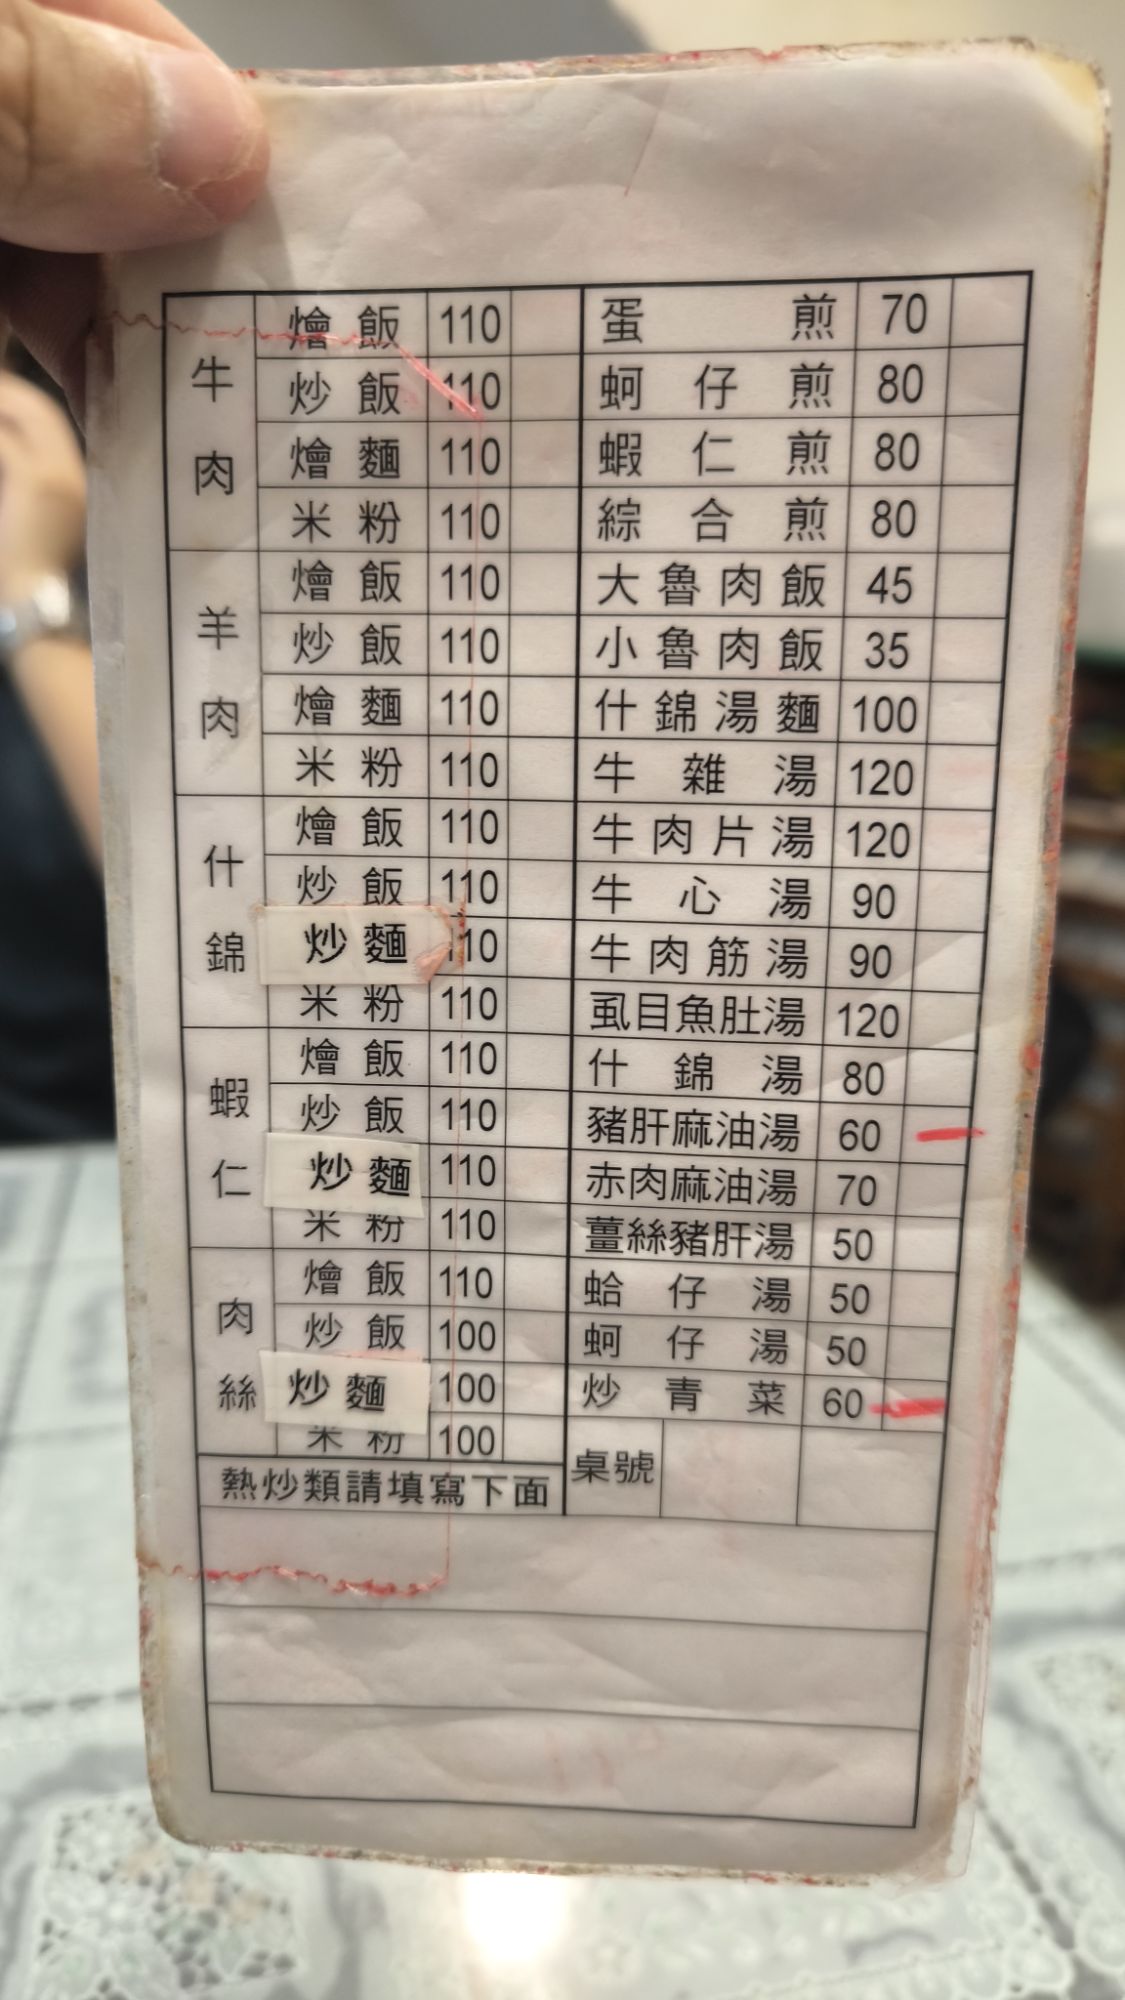 牛肉
燴飯 110
炒飯 110
燴麵 110
米粉 110
羊肉
燴飯 110
炒飯 110
燴麵 110
米粉 110
什錦
燴飯 110
炒飯 110
炒麵 110
米粉 110
蝦仁
燴飯 110
炒飯 110
炒麵 110
米粉 110
肉絲
燴飯 110
炒飯 100
炒麵 100
米粉 100
熱炒類請填寫下面
蛋煎 70
蚵仔煎 80
蝦仁煎 80
綜合煎 80
大魯肉飯 45
小魯肉飯 35
什錦湯麵 100
牛雜湯 120
牛肉片湯 120
牛心湯 90
牛肉筋湯 90
虱目魚肚湯 120
什錦湯 80
豬肝麻油湯 60
赤肉麻油湯 70
薑絲豬肝湯 50
蛤仔湯 50
蚵仔湯 50
炒青菜 60
桌號